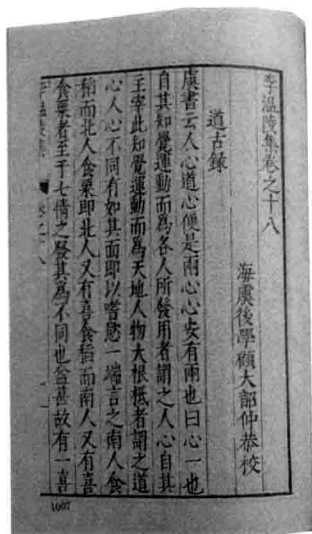 李溫陵集卷之十八
海虞後學顧大韶仲恭校
道古錄
虞書云人心道心便是兩心心安有兩也曰心一也
自其知覺運動而爲各人所發用者謂之人心自其
主宰此知覺運動而爲天地人物大根柢者謂之道
心人心不同有如其面即以嗜慾一端言之南人食
稻而北人食粟即北人又有喜食稻而南人又有喜
食粟者至于七情之發其爲不同也益甚故有一喜
李溫陵集 卷之十八 一
1007